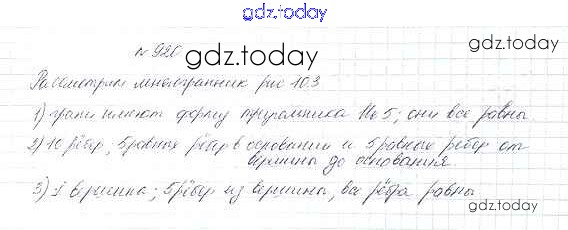 gdz.today
№920
gdz.today
gdz.today
Рассмотрим многогранник рис 10.3
1) грани имеют форму треугольника №5; они все равны
2) 10 рёбер; 5 равных рёбер в основании и 5 равных рёбер от
вершины до основания.
3) 1 вершина; 5 рёбер из вершины, все рёбра равны
gdz.today
gdz.today